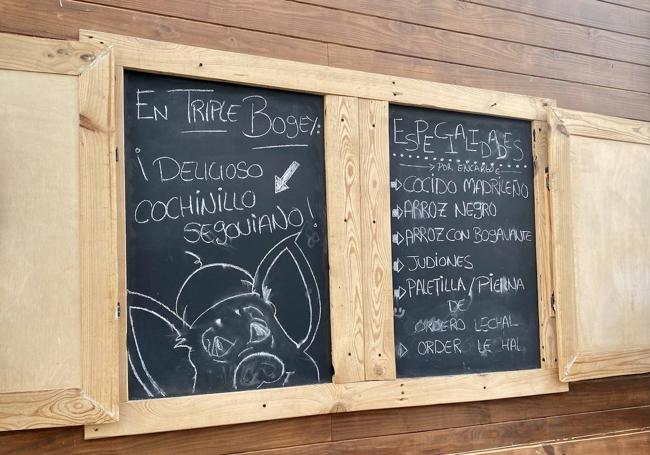 En TRIPLE Bogey:
¡DELICIOSO
COCHINILLO
SEGOVIANO!
ESPECIALIDADES
POR ENCARGO
COCIDO MADRILEÑO
ARROZ NEGRO
ARROZ CON BOGAVANTE
JUDIONES
PALETILLA/PIERNA
DE
ORDERO LECHAL
ORDER LE HAL